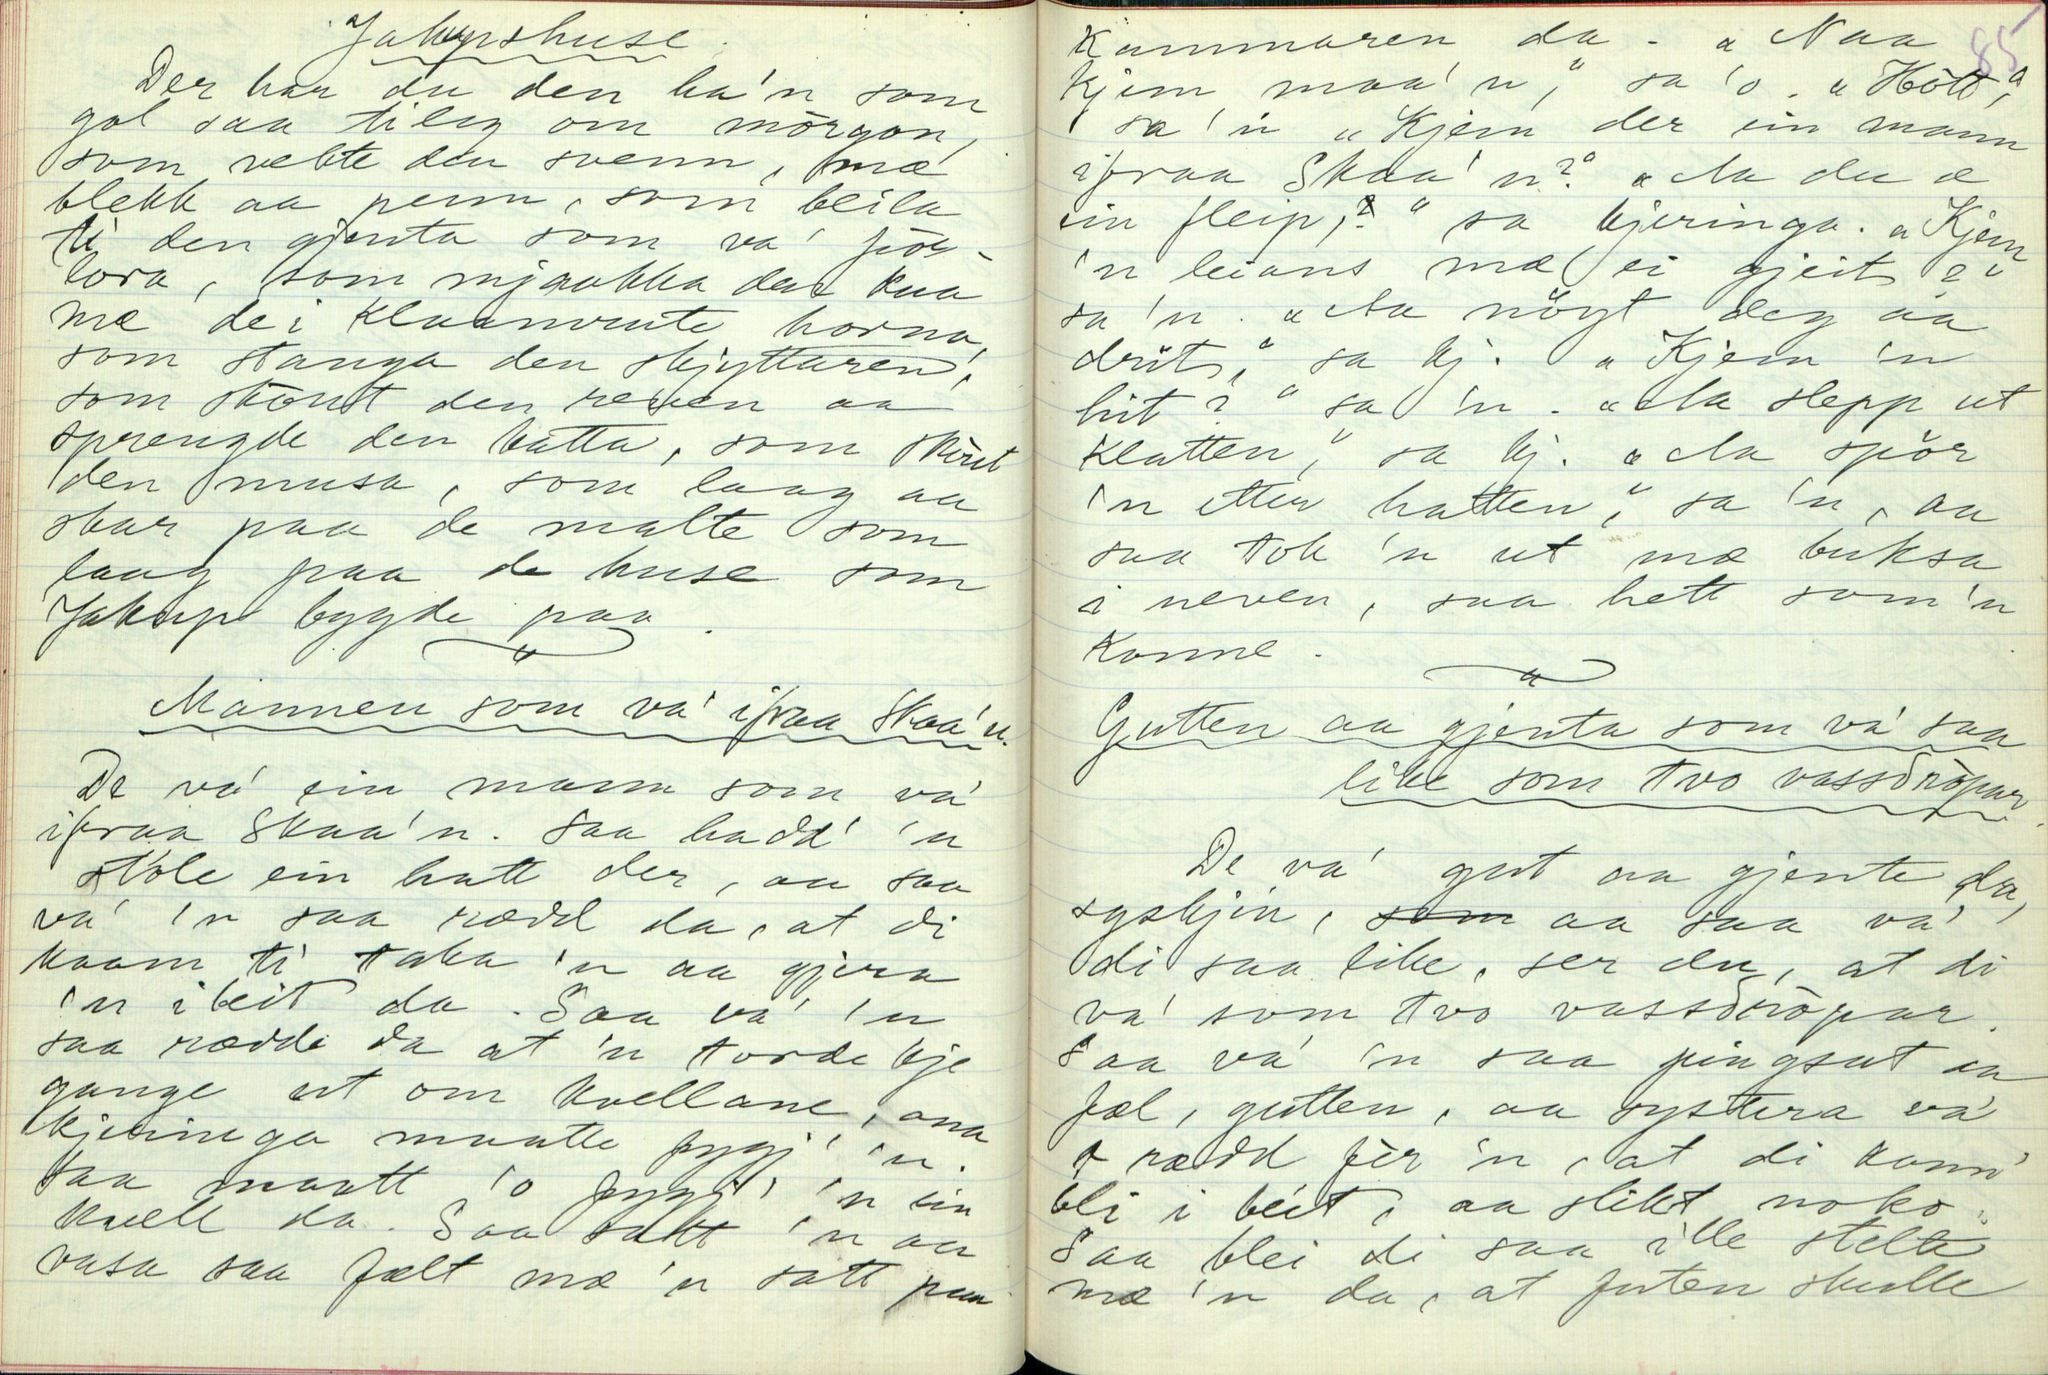 Jakupshuse.
Der har du den ha'n som
gol saa tileg om mörgon,
som vekte den svenn, mæ
blekk aa penn, som beila
ti den gjenta som va'
som mjaakka den kua
mæ dei klaanvente horna,
som stanga den skjyttaren,
som skout den reven aa
sprengde den katta, som skout
den musa, som laag aa
skar paa de malte som
laag paa de huse som
Jakup bygde paa.
Mannen som va' ifraa Skaa'n.
De va' ein mann som va'
ifraa Skaa'n. Saa hadd' 'n
stole ein hatt der, aa saa
va' 'n saa rædd da, at di
kaam ti taka 'n aa gjera
'n i beit da. Saa va' 'n
saa rædde da at 'n torde kje
gange ut om kvellane, ana
kjeringa maatte fygj' 'n.
Saa maatt 'o fygj' 'n ein
kvell da. Saa satt 'n aa
vasa saa fælt mæ 'n satt paa
85
Kammaren da. "Naa
kjem maa'n," sa 'o. "Hött,"
sa 'n "Kjem der ein mann
ifraa Skaa'n?" "Aa du æ
ein fleip," sa kjeringa. "Kjem
'n leians mæ ei gjeit?"
sa 'n. "Aa nöyt deg aa
drit," sa kj. "Kjem 'n
hit?" sa 'n. "Aa slepp ut
klatten," sa kj. "Aa spör
'n etter hatten," sa 'n, aa
saa tok 'n ut mæ buksa
i neven, saa hett som 'n
konne.
Gutten aa gjenta som va' saa
like som tvo vassdröpar.
De va' gut aa gjente da,
syskjin, aa saa va'
di saa like, ser du, at di
va' som tvo vassdröpar.
Saa va' 'n saa pingsut aa
fæl, gutten, aa systera va'
rædd fér 'n, at di konn'
bli i beit, aa slikt noko.
Saa blei di saa ille stelte
mæ 'n da, at futen skulle